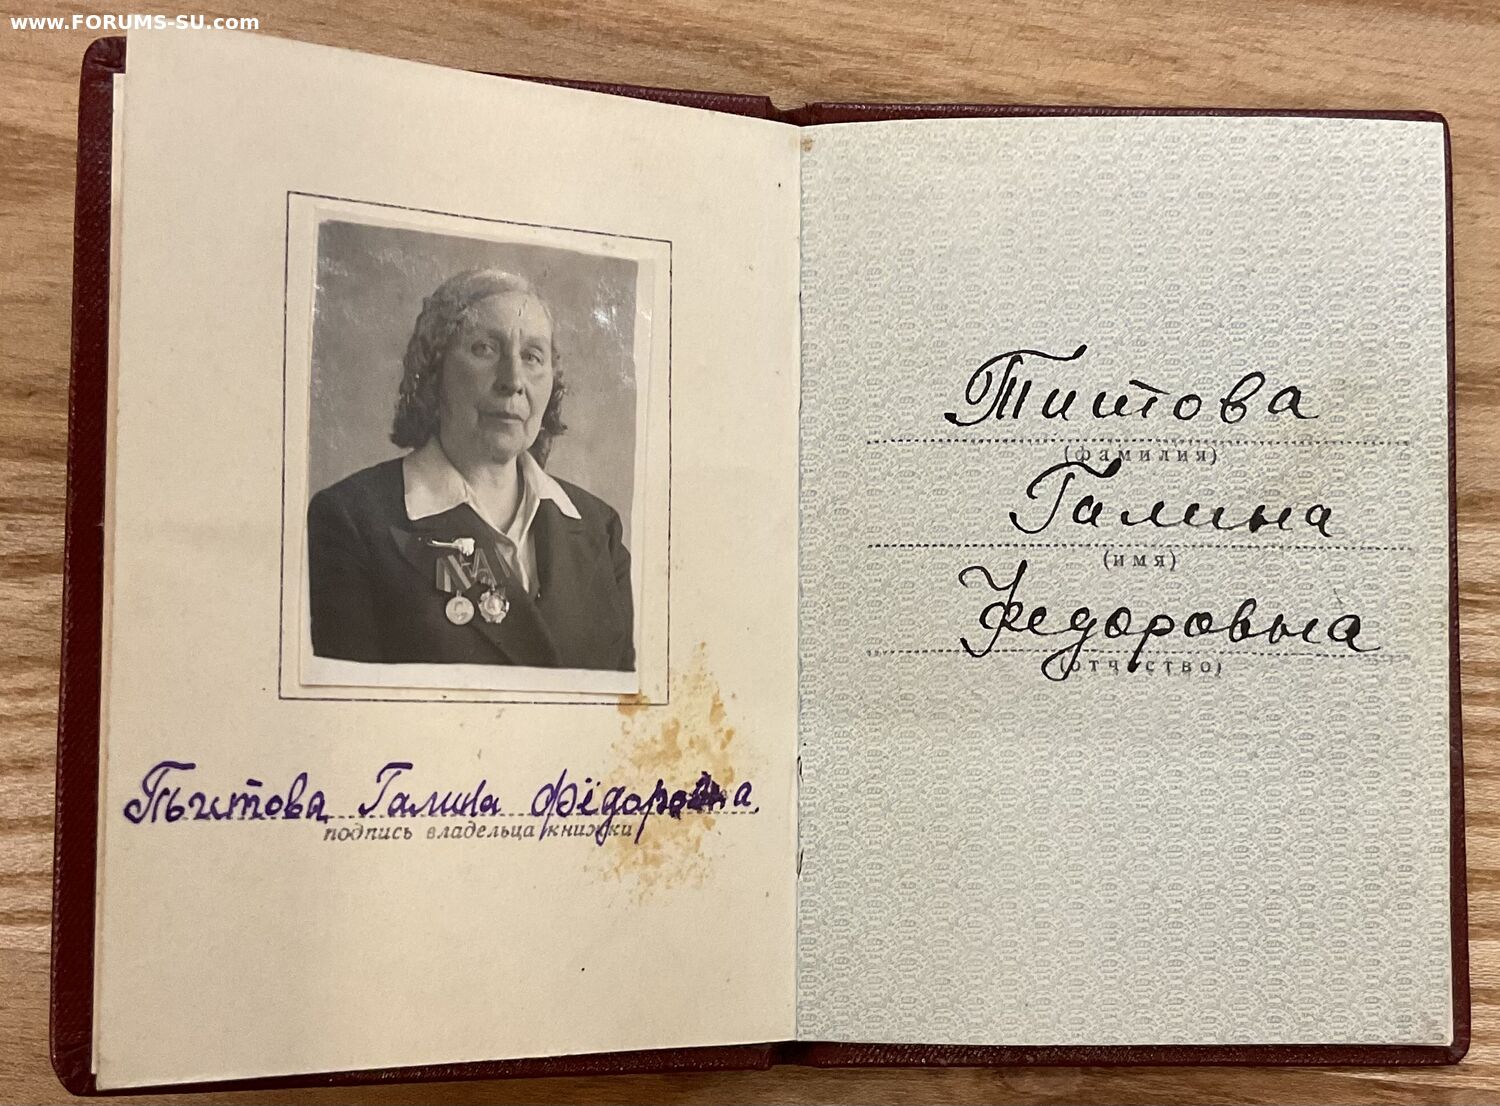 www.FORUMS-SU.com
Титова Галина Фёдоровна
подпись владельца книжки
Титова
(фамилия)
Галина
(имя)
Федоровна
(отчество)